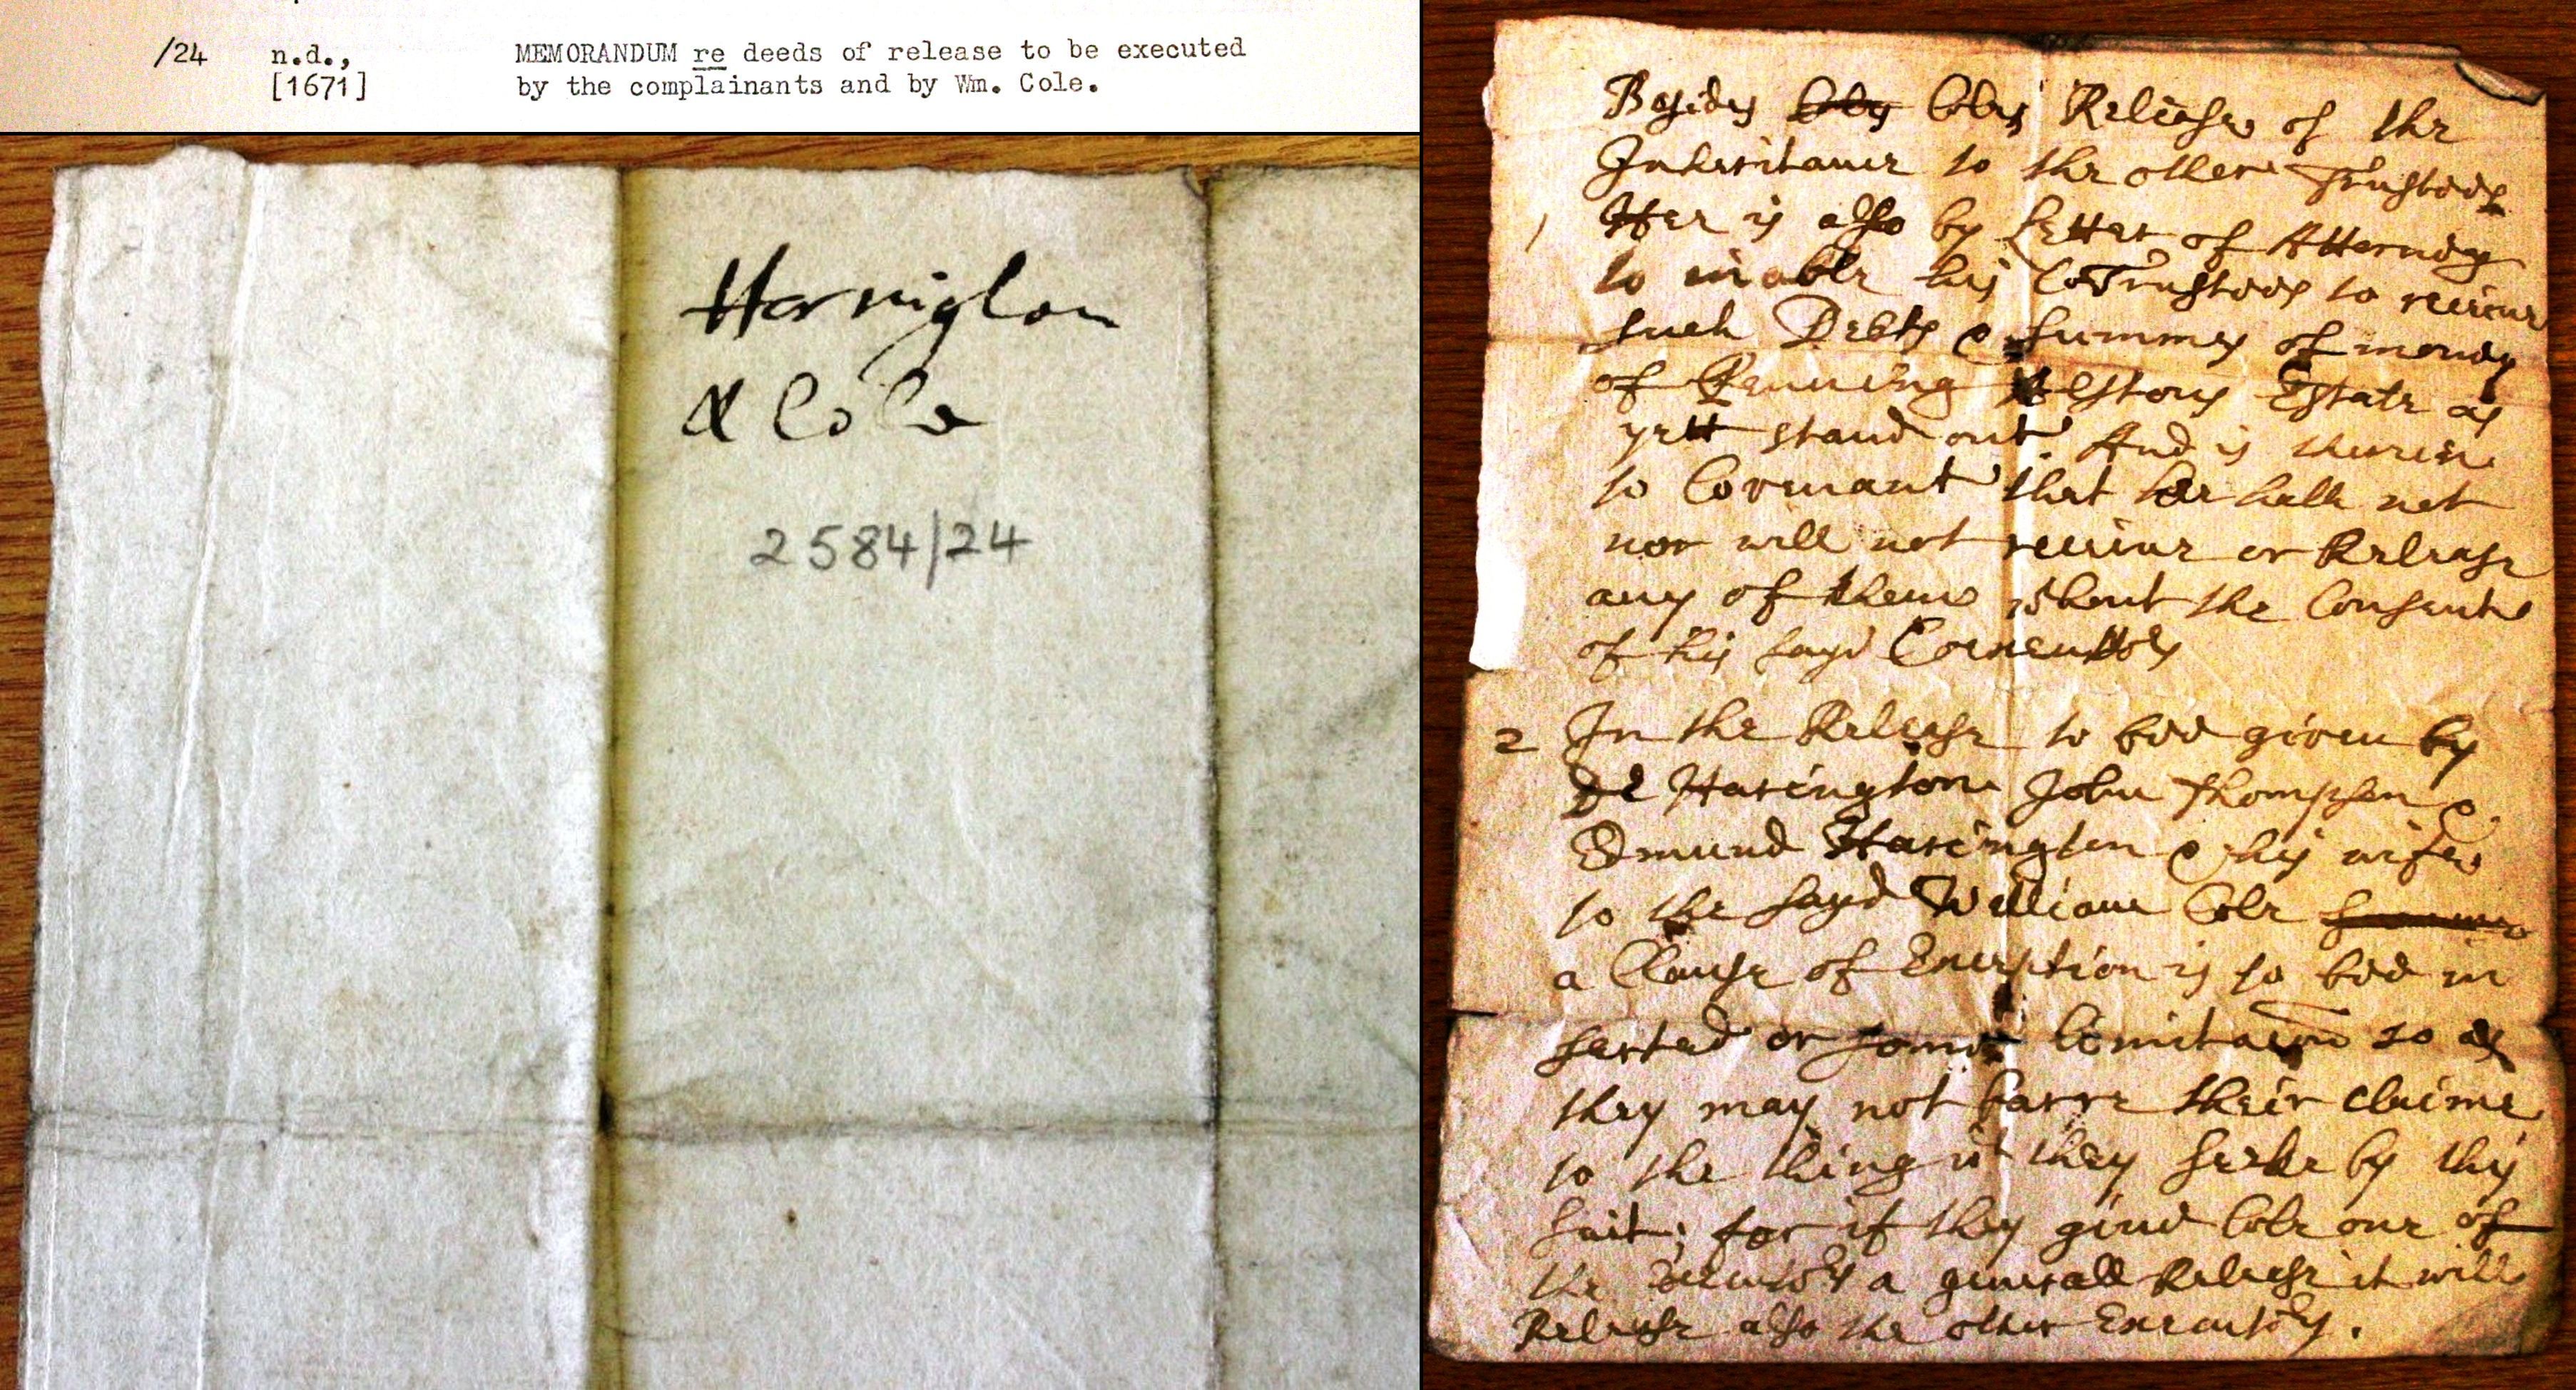 /24 n.d., MEMORANDUM re deeds of release to be executed
[1671] by the complainants and by Wm. Cole.
Harington
& Cole
2584/24
Besides Coles Coles Release of the
Inheritance to the other Trustees
1 Hee is also by Letter of Atterney
to inable his CoTrustees to receiue
such Debts & summes of money
of Testors Estate as
yett stand out And is therein
to Covenant that hee hath not
nor will not receiue or Release
any of them wthout the Consent
of his sayd
2 In the Release to bee given by
Harington John Thompson &
Edmund Harington & his wife
to the sayd William Cole
a Clause of Exception is to bee in
serted or some so as
they may not barre their claime
to the thing wt they seeke by this
suit; for if they giue Cole one of
the a generall Release it will
Release also the other Executors.